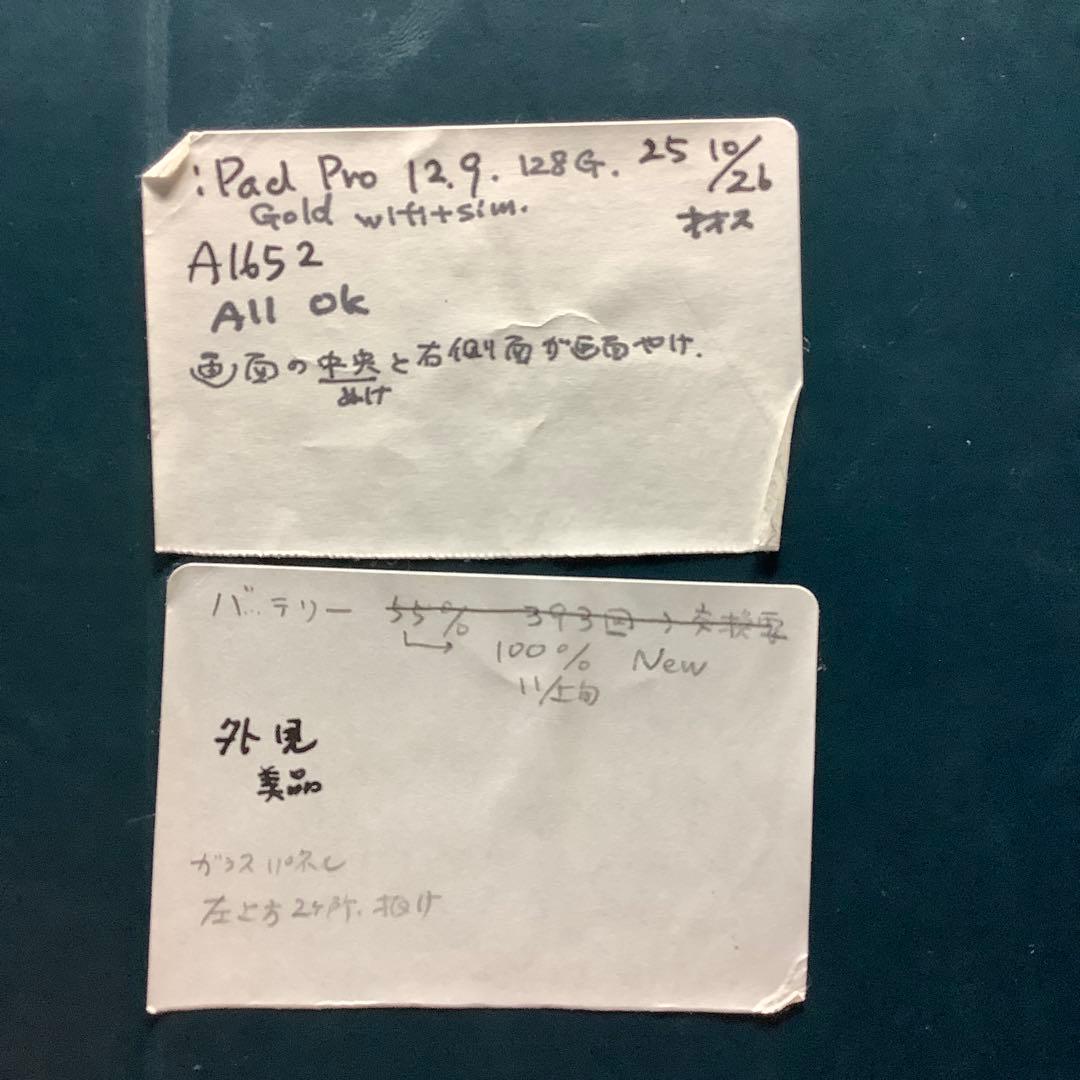 iPad Pro 12.9. 128G. 25 10/26
Gold wifi+sim.
A1652
All Ok
画面の中央と右側面が画面やけ.
ぬけ
バッテリー 55% 393回→交換要
100% New
11/上旬
外見
美品
ガラスパネル
左上方2ヶ所.抜け